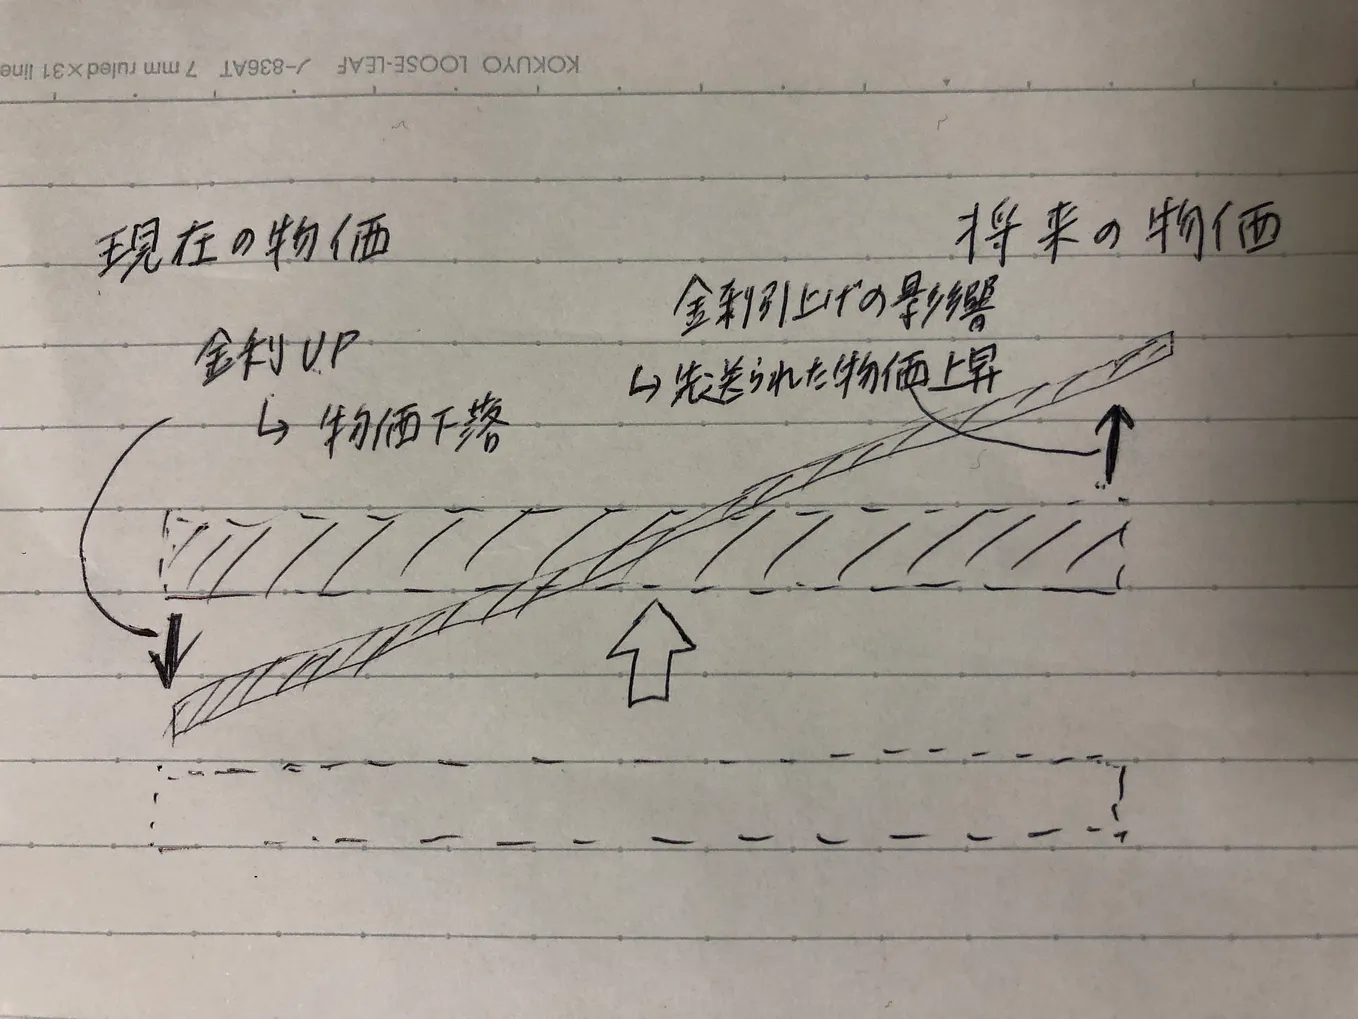 KOKUYO LOOSE-LEAF ノ-836AT 7 mm ruled×31 line
現在の物価
将来の物価
金利UP
↳ 物価下落
金利引上げの影響
↳ 先送られた物価上昇